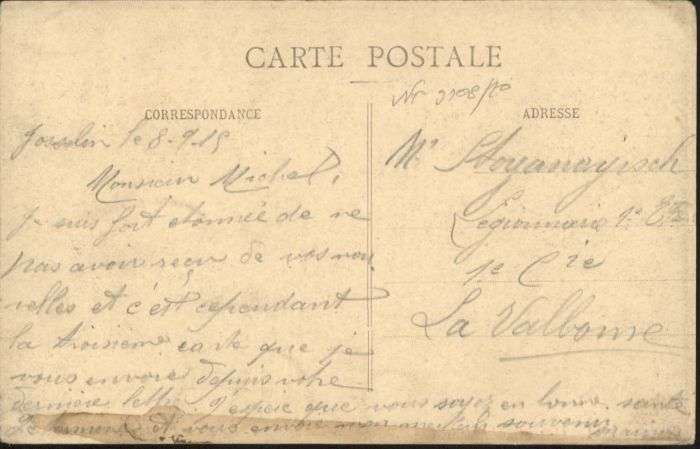 CARTE POSTALE
CORRESPONDANCE
ADRESSE
Josselin le 8-9 15
Monsieur Michel,
Je suis fort etonnée de ne
pas avoir reçu de vos nou
velles et c'est cependant
la troisieme carte que je
vous envoie depuis votre
dernière lettre J'espère que vous soyez en bonne santé
et vous envoie mon meilleur souvenir
Nr
Mr Stoyanayisch
Légionnaire 1e
1e Cie
La Valbonne